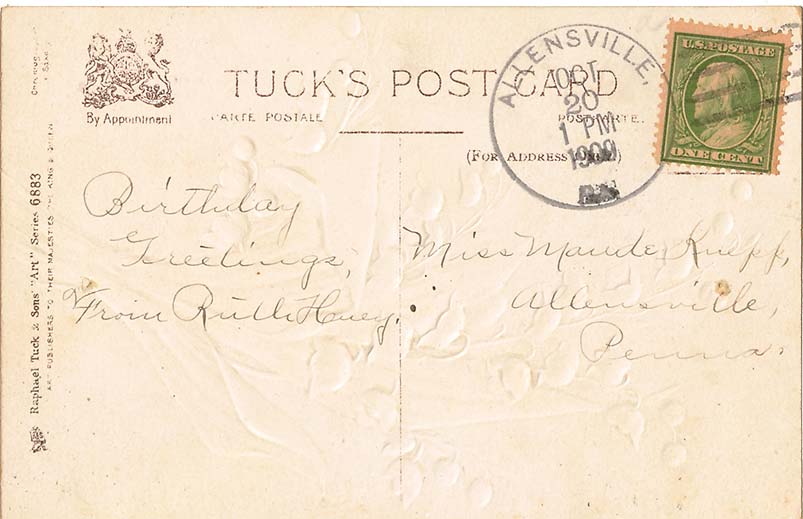 TUCK'S POST CARD
By Appointment
CARTE POSTALE
POSTKARTE.
(FOR ADDRESS ONLY.)
ALLENSVILLE,
OCT
20
1 PM
1909
U.S. POSTAGE
ONE CENT
Birthday
Greetings,
From Ruth Huey.
Miss Maude Knepp,
Allensville,
Penna.
Raphael Tuck & Sons' "Art" Series 6883
ART PUBLISHERS TO THEIR MAJESTIES THE KING & QUEEN